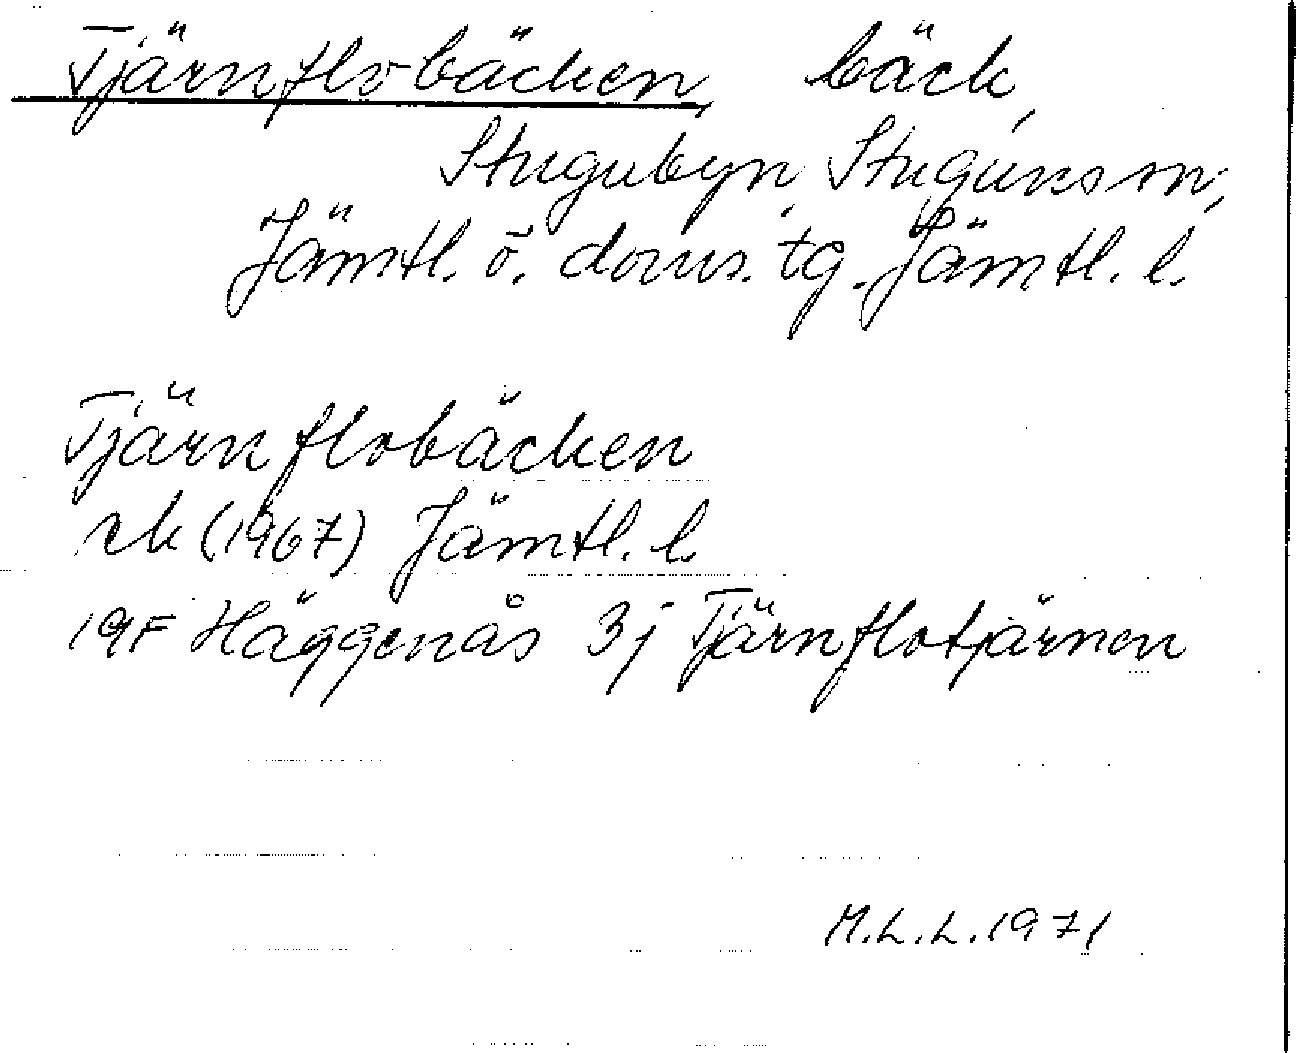 Tjärnflobäcken, bäck,
Stugubyn, Stuguns sn,
Jämtl. ö. doms. tg. Jämtl. l.
Tjärnflobäcken
rk (1967) Jämtl. l.
19F Häggenås 3j Tjärnflotjärnen
M.L.L. 1971